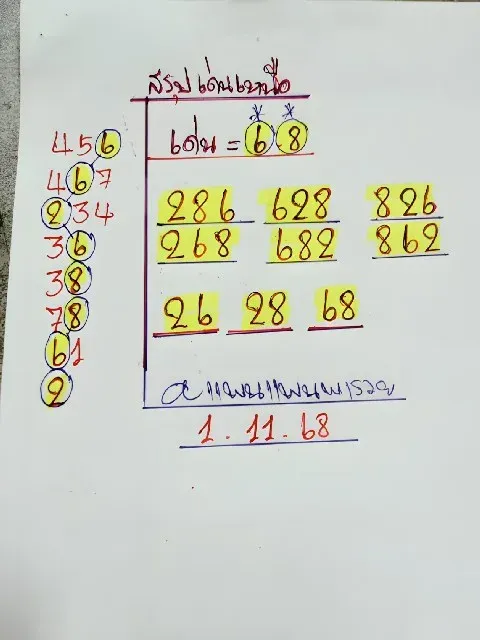 สรุปเด่นเหนือ
เด่น = 6 8
456
467
234
36
38
78
61
2
286 628 826
268 682 862
26 28 68
1.11.68